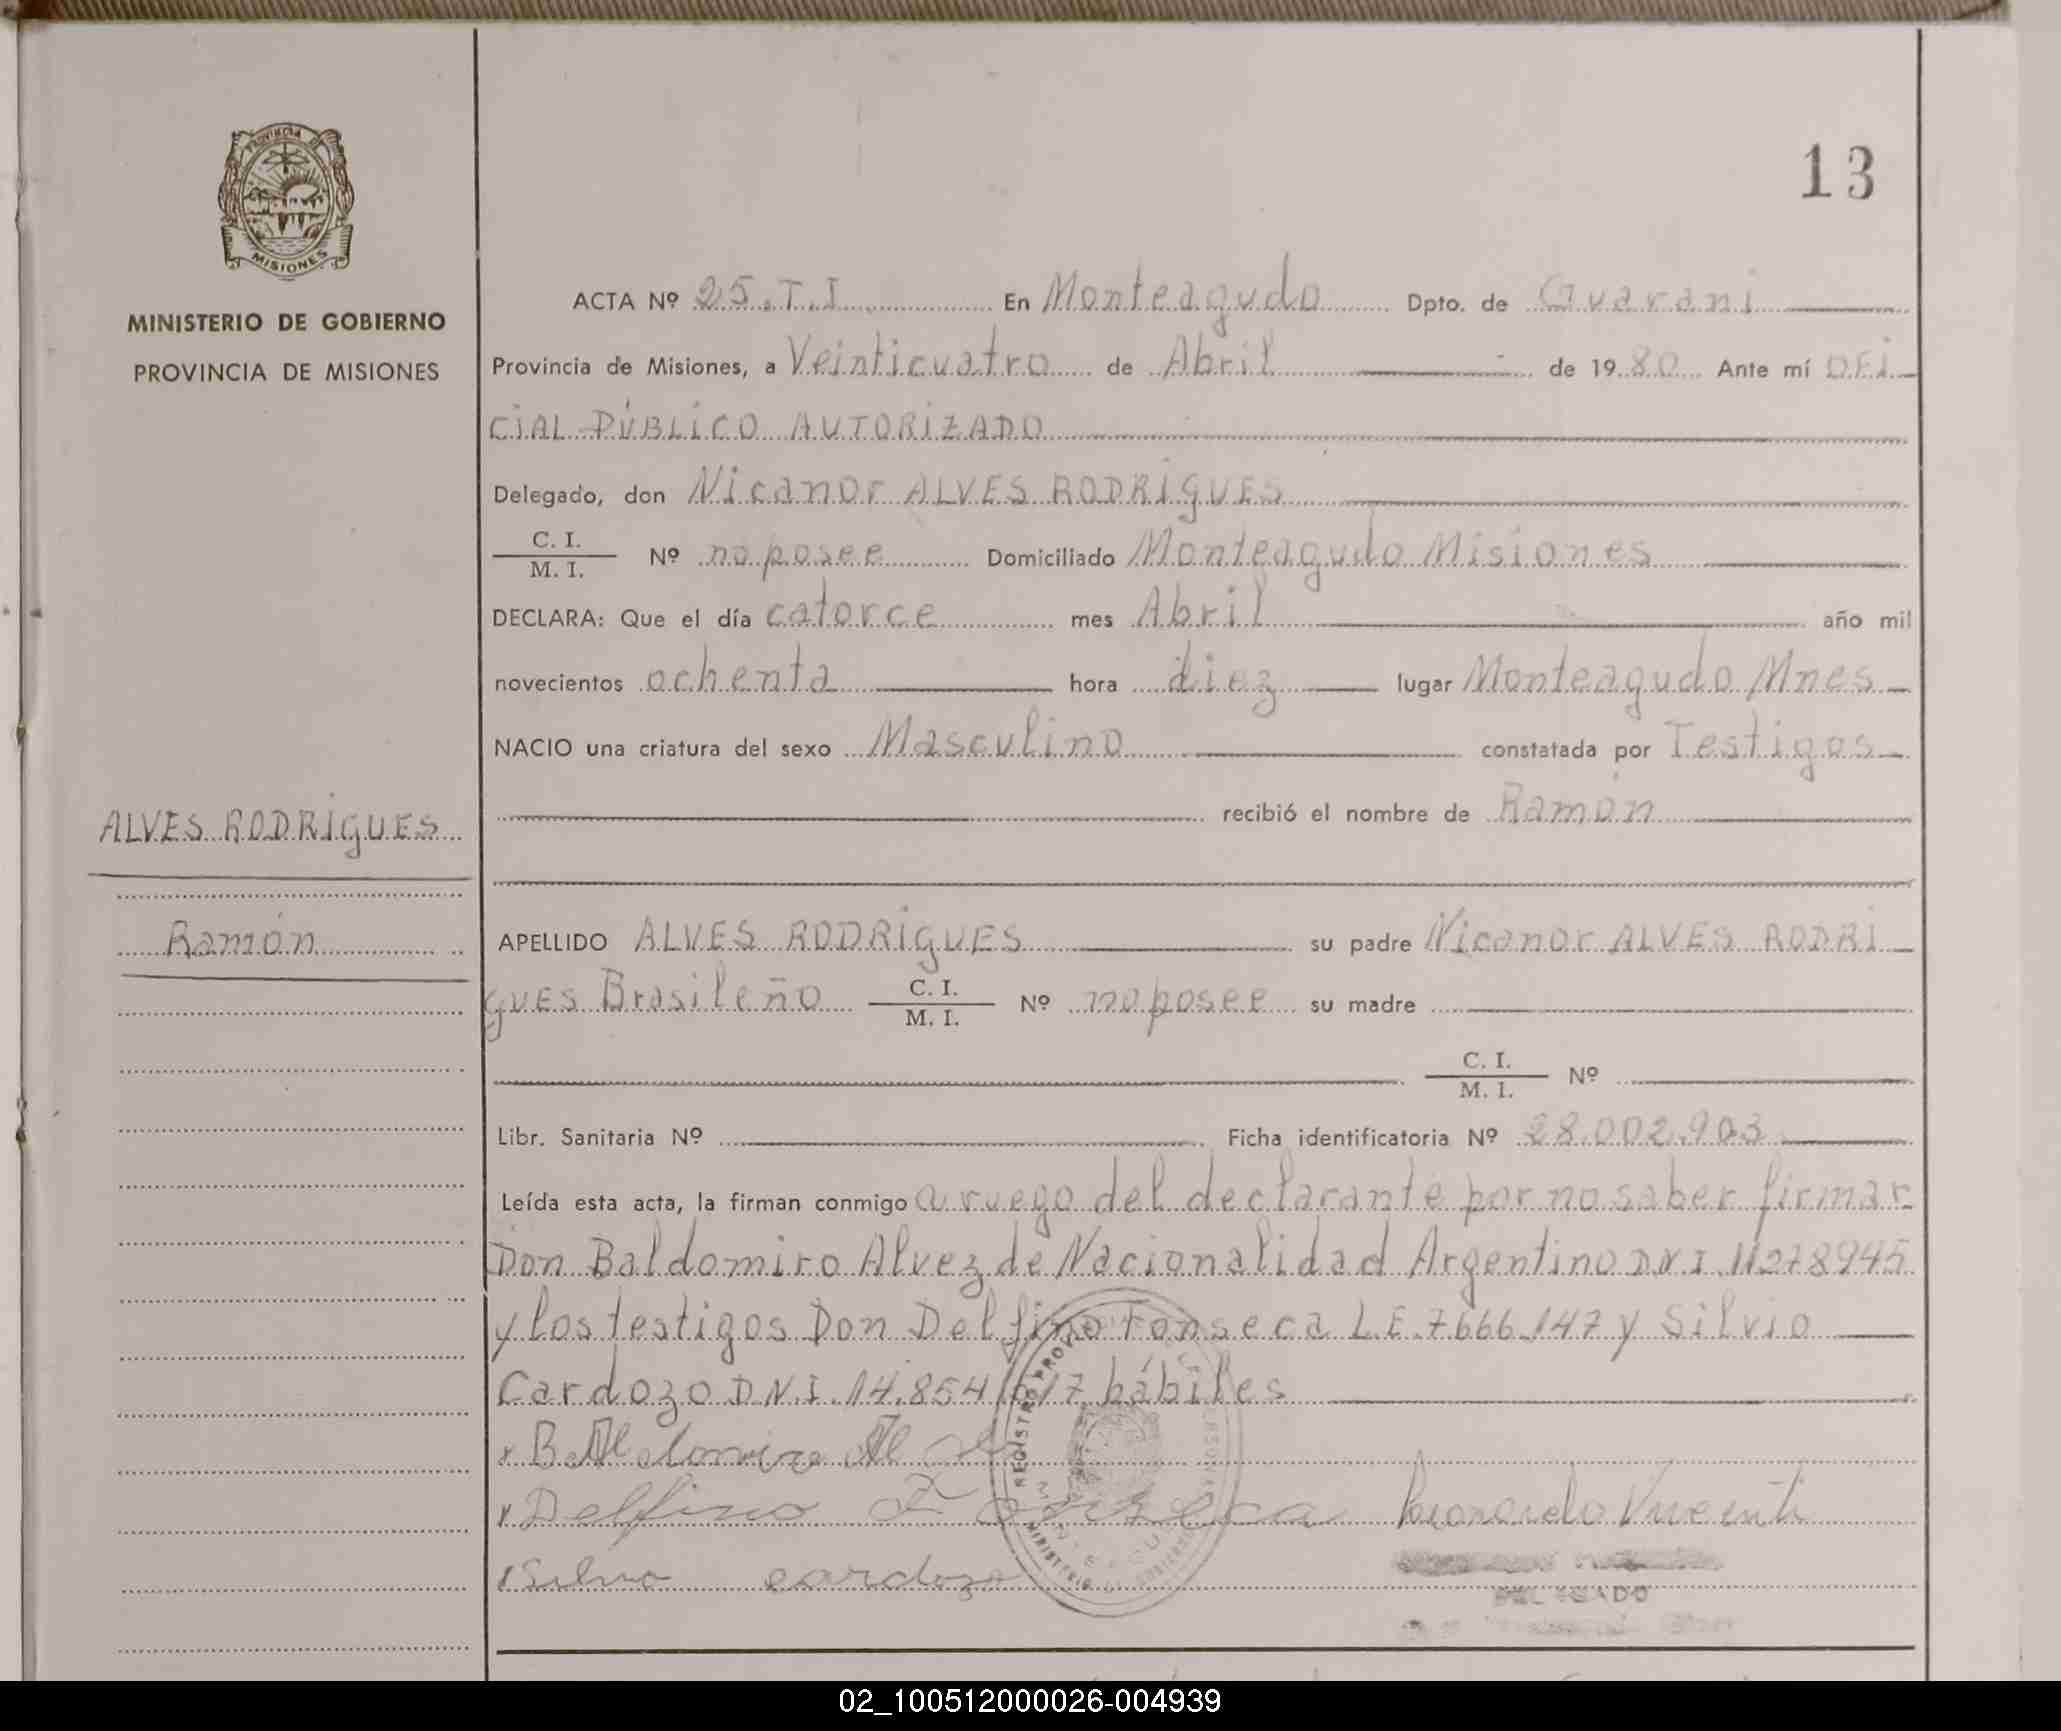 13
PROVINCIA DE
MISIONES
MINISTERIO DE GOBIERNO
PROVINCIA DE MISIONES
ACTA Nº 25.T.I En Monteagudo Dpto. de Guarani
Provincia de Misiones, a Veinticuatro de Abril de 1980 Ante mí OFI
CIAL PÚBLICO AUTORIZADO
Delegado, don Nicanor ALVES RODRIGUES
C. I.
M. I. Nº no posee Domiciliado Monteagudo Misiones
DECLARA: Que el día catorce mes Abril año mil
novecientos ochenta hora diez lugar Monteagudo Mnes
NACIO una criatura del sexo Masculino constatada por Testigos
recibió el nombre de Ramón
ALVES RODRIGUES
Ramón
APELLIDO ALVES RODRIGUES su padre Nicanor ALVES RODRI
GUES Brasileño C. I.
M. I. Nº no posee su madre
C. I.
M. I. Nº
Libr. Sanitaria Nº Ficha identificatoria Nº 28.002.903
Leída esta acta, la firman conmigo a ruego del declarante por no saber firmar
Don Baldomiro Alvez de Nacionalidad Argentino D.N.I. 11278945
y los testigos Don Delfino Fonseca L.E. 7.666.147 y Silvio
Cardozo D.N.I. 14.854 hábiles
Delfino Fonseca
Silvio cardozo
DELEGADO
02_100512000026-004939